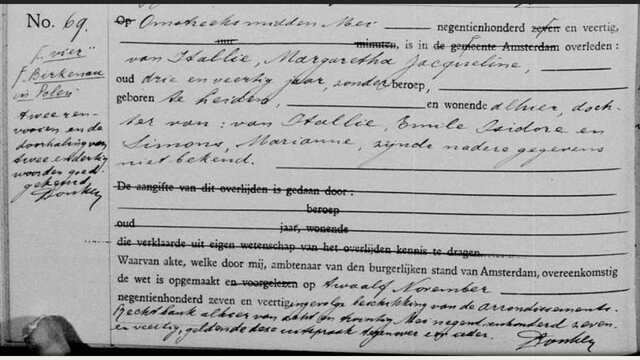 No. 69.
f. "vier"
f. Birkenau
in Polen
twee ren-
vooien en de
doorhaling van
twee en dertig
woorden goed-
gekeurd
Op Omstreeks midden Mei negentienhonderd zeven en veertig,
uur minuten, is in de gemeente Amsterdam overleden:
van Itallie, Margaretha Jacqueline,
oud drie en veertig jaar, zonder beroep,
geboren te Leiden, en wonende alhier, doch-
ter van: van Itallie, Emile Isidore en
Simons, Marianne, zijnde nadere gegevens
niet bekend.
De aangifte van dit overlijden is gedaan door:
beroep
oud jaar, wonende
die verklaarde uit eigen wetenschap van het overlijden kennis te dragen.
Waarvan akte, welke door mij, ambtenaar van den burgerlijken stand van Amsterdam, overeenkomstig
de wet is opgemaakt en voorgelezen op twaalf November
negentienhonderd zeven en veertig ingevolge beschikking van de Arrondissements-
Rechtbank alhier van acht en twintig Mei negentienhonderd zeven
en veertig, geldende deze uitspraak tegenover een ieder.